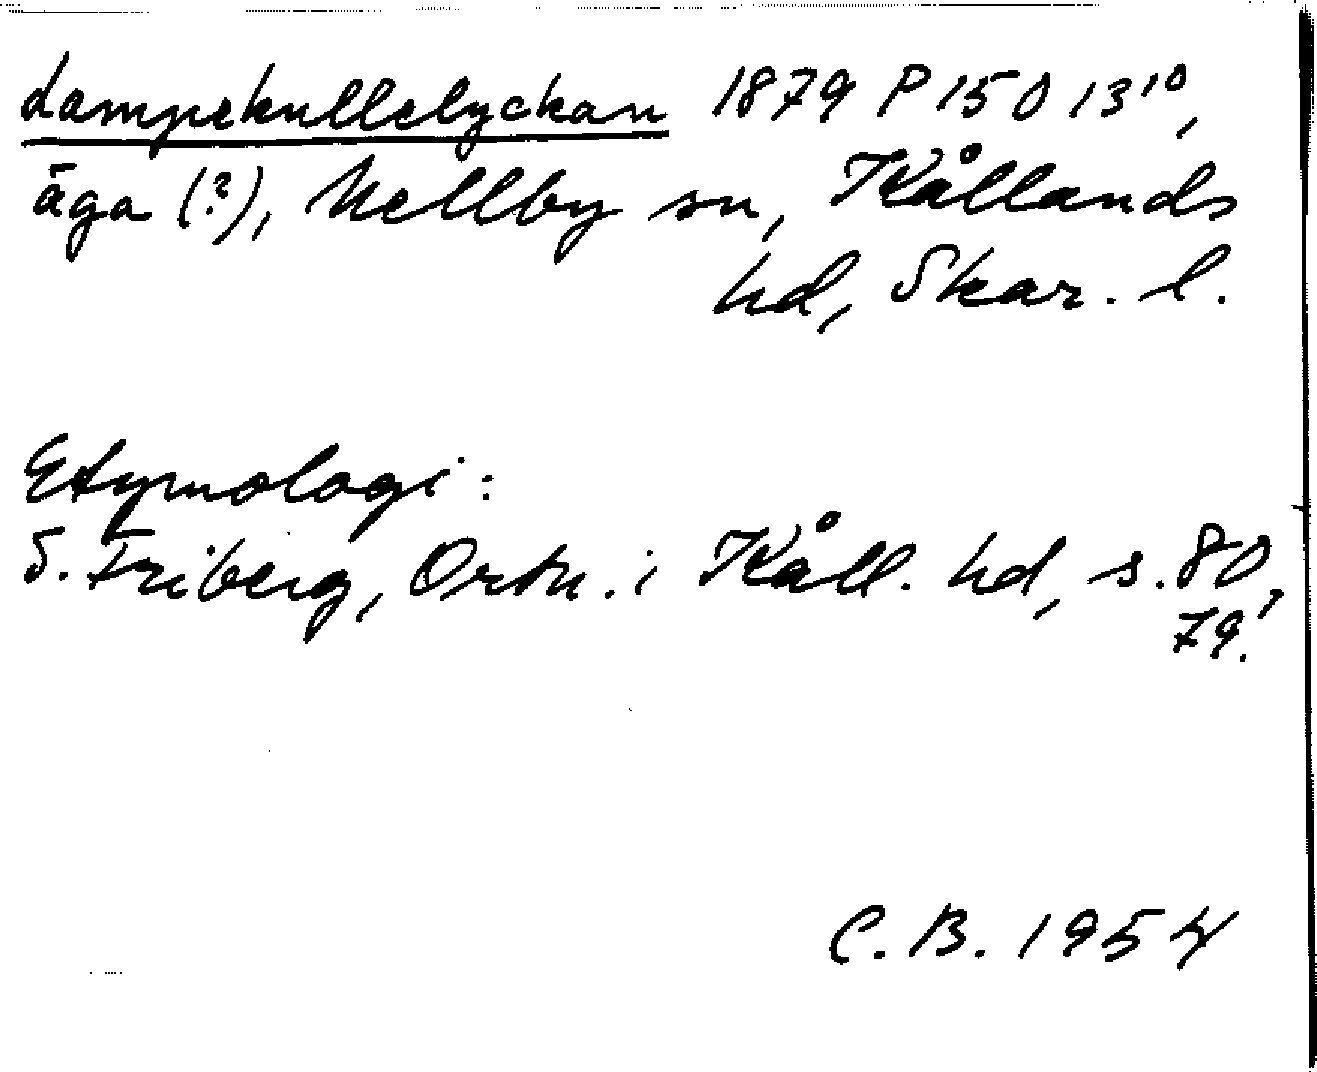 Lampekullelyckan 1879 P 150 13¹⁰,
äga (?), Mellby sn, Kållands
hd, Skar. l.
Etymologi:
S. Friberg, Ortn. i Kåll. hd, s. 80,
79.
C. B. 1954